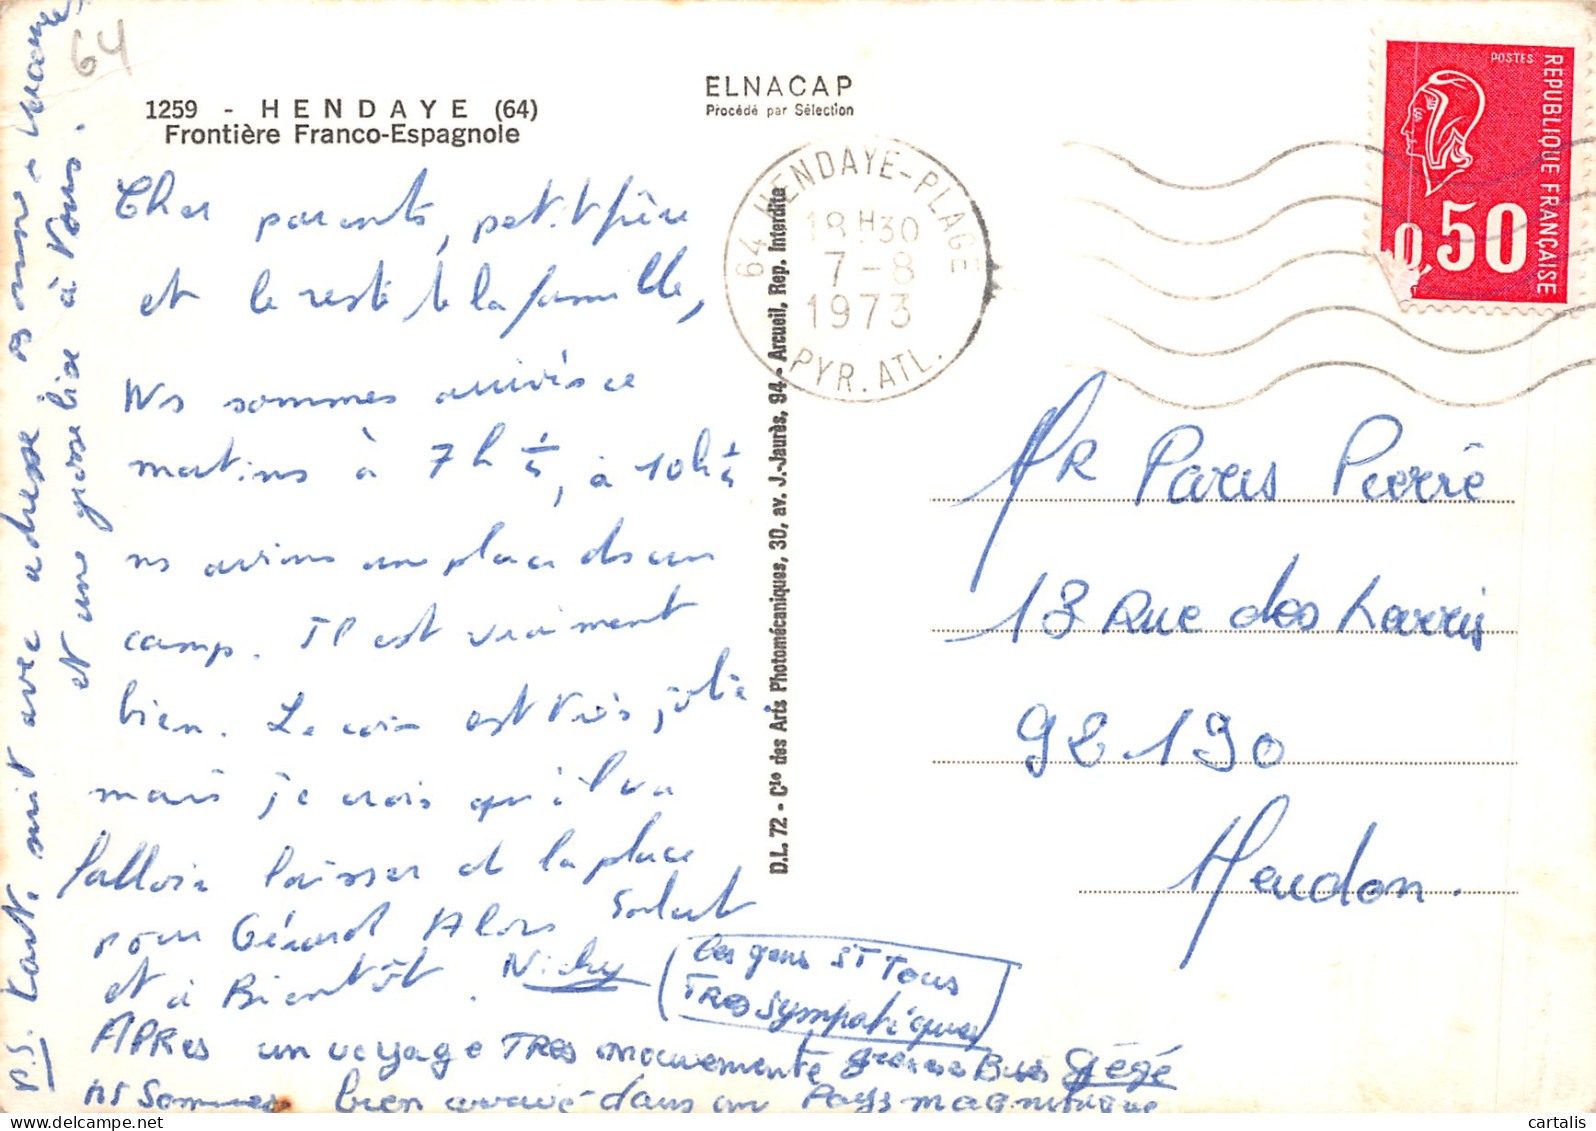 64
1259 - HENDAYE (64)
Frontière Franco-Espagnole
ELNACAP
Procédé par Sélection
64 HENDAYE-PLAGE
18H30
7-8
1973
PYR. ATL.
POSTES
REPUBLIQUE FRANÇAISE
0,50
Cher parents, petit frère
et le reste de la famille,
Ns sommes arrivés ce
matins à 7h 1/4, à 10h 1/4
ns avions un place ds un
camp. Il est vraiment
bien. Le coin est très jolie
mais je crois qu'il va
falloir laisser la place
pour Gérard Alors Salut
et à Bientôt. Nicky
Les gens sT Tous
TRes sympatiques
APRes un voyage TRes mouvementé Bises Gégé
ns Sommes bien arrivé dans un Pays magnifique
P.S. Carte suit avec adresse
et une grosse bise à Vous.
D.L. 72 - Cie des Arts Photomécaniques, 30, av. J.-Jaurès, 94 - Arcueil, Rep. Interdite
MR Paris Pierre
13 Rue des Larris
92190
Meudon.
cartalis.com